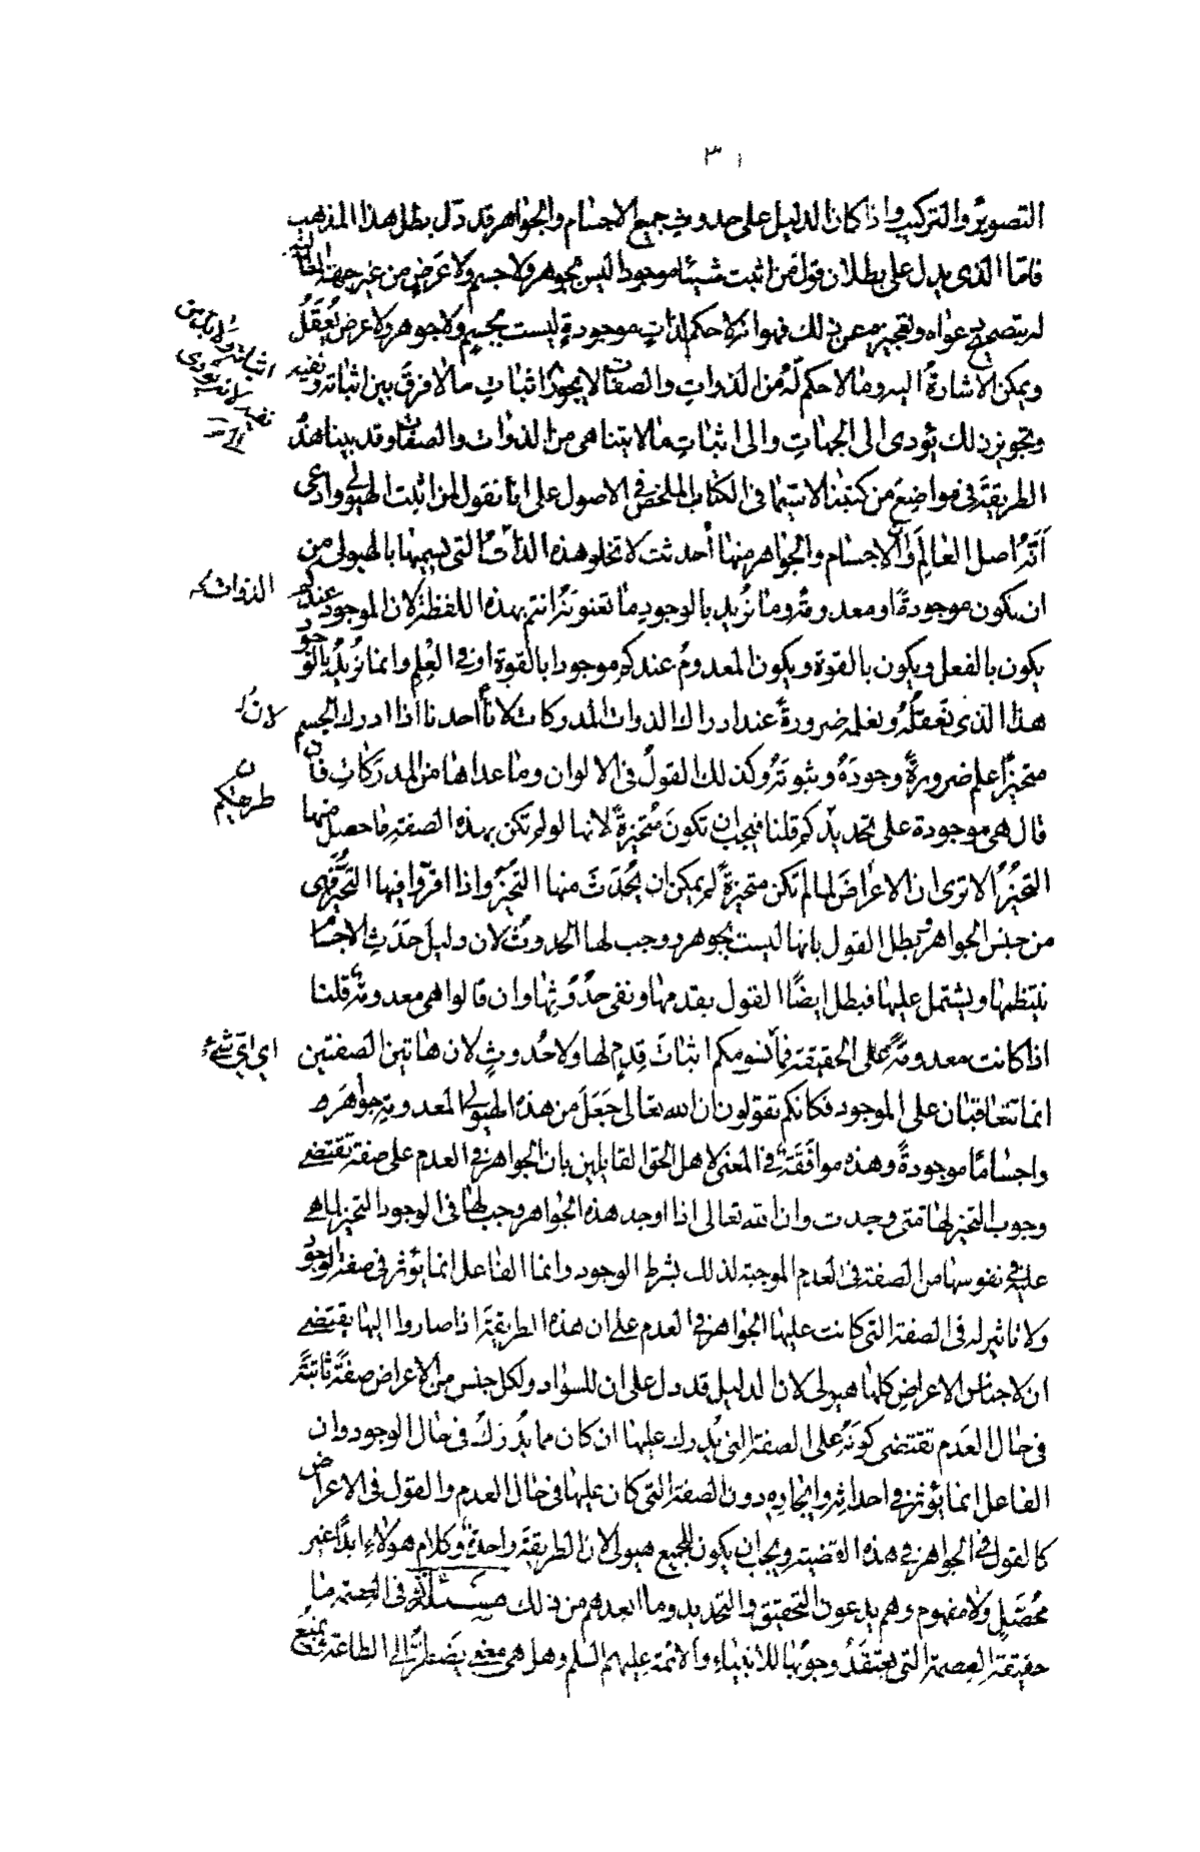 ٣١
التصوير والتركيب واذا كان الدليل على حدوث جميع الاجسام والجواهر قد دل بطل هذا المذهب
فاما الذى يدل على بطلان قول من اثبت شيئا موجودا ليس بجوهر ولا جسم ولا عرض من غير جهة المطالبة
له بتصحيح دعواه وتعجيزه عن ذلك فهو انه لا حكم لذات موجودة ليست بجسم ولا جوهر ولا عرض يعقل
ويمكن الاشارة اليه وما لا حكم له من الذوات والصفات لا يجوز اثبات ما لا فرق بين اثباته ونفيه
وتجويز ذلك يؤدى الى الجهات والى اثبات ما لا يتناهى من الذوات والصفات وقد بينا هذه
الطريقة فى مواضع من كتبنا لا سيما فى الكتاب الملخص فى الاصول على انا نقول لمن اثبت الهيولى وادعى
انه اصل العالم وان الاجسام والجواهر منها أحدثت لا تخلو هذه الذات التى تسميها بالهيولى من
ان يكون موجودة او معدومة وما نريد بالوجود ما تعنونه انتم بهذه اللفظة لان الموجود عندكم
يكون بالفعل ويكون بالقوة ويكون المعدوم عندكم موجودا بالقوة او فى العلم وانما نريد بالوجود
هذا الذى نعقله ونعلمه ضرورة عند ادراك الذوات المدركات لأن احدنا اذا ادرك الجسم
متحيزا علم ضرورة وجوده وثبوته وكذلك القول فى الالوان وما عداها من المدركات فان
قال هى موجودة على تحديدكم قلنا فيجب ان تكون متحيزة لانها لو لم تكن بهذه الصفة ما حصل منها
التحيز الا ترى ان الاعراض لما لم تكن متحيزة لم يمكن ان يحدث منها التحيز واذا اقروا فيها التحيز فهى
من جنس الجواهر وبطل القول بانها ليست بجوهر ووجب لها الحدوث لان دليل حدث الاجسام
ينتظمها ويشتمل عليها فبطل ايضا القول بقدمها ونفى حدوثها وان قالوا هى معدومة قلنا
اذا كانت معدومة على الحقيقة فما نسومكم اثبات قدم لها ولا حدوث لان هاتين الصفتين
انما تتعاقبان على الموجود فكانكم تقولون ان الله تعالى جعل من هذه الهيولى المعدومة جواهر
واجساما موجودة وهذه موافقة فى المعنى لاهل الحق القايلين بان الجواهر فى العدم على صفة تقتضى
وجوب التحيز لها متى وجدت وان الله تعالى اذا اوجد هذه الجواهر وجب لها فى الوجود التحيز لما هى
عليه فى نفوسها من الصفة فى العدم الموجبة لذلك بشرط الوجود وانما الفاعل انما يؤثر فى صفة الوجود
ولا تاثير له فى الصفة التى كانت عليها الجواهر فى العدم على ان هذه الطريقة اذا صاروا اليها يقتضى
ان لاجناس الاعراض كلها هيولى لان الدليل قد دل على ان للسواد ولكل جنس من الاعراض صفة ثابتة
فى حال العدم تقتضى كونه على الصفة التى يدرك عليها ان كان مما يدرك فى حال الوجود وان
الفاعل انما يؤثر فى احداثه وايجاده دون الصفة التى كان عليها فى حال العدم والقول فى الاعراض
كالقول فى الجواهر فى هذه القضية ويجب ان يكون للجميع هيولى لان الطريقة واحدة وكلام هولاء ابدا غير
محصل ولا مفهوم وهم يدعون التحقيق والتحديد وما ابعدهم من ذلك مسئلة فى العصمة ما
حقيقة العصمة التى يعتقد وجوبها للانبياء والائمة عليهم السلم وهل هى معنى يضطر الى الطاعة ويمنع
اثباته ولا بين
نفيه لانه يؤدى
الذوات
لان
اى اى شىء